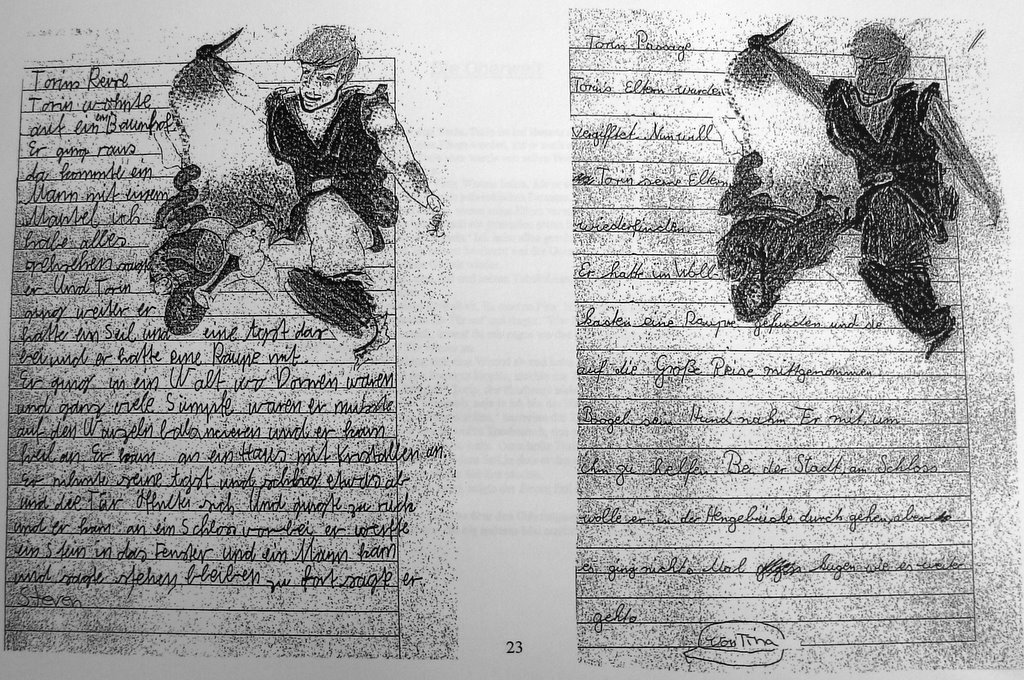 Torins Reise
Torin wohnte
auf ein em Baumhof.
Er ging raus
da kommte ein
Mann mit einem
Mantel ich
habe alles
gesehen sagte
er Und Torin
ging weiter er
hatte ein Seil und eine Axt dar
bei und er hatte eine Raupe mit.
Er ging in ein Walt wo Dornen waren
und ganz viele Sümpfe waren er mutste
auf den Wurzeln balancieren und er kam
heil an. Er kam an ein Haus mit Kristallen an.
Er nahmte seine Axt und schlug etwas ab
und die Tür öffnete sich Und ging zu rück
und er kam an ein Schloss vorbei er werfte
ein Stein in das Fenster und ein Mann kam
und sagte stehen bleiben zu fort sagte er
Steven
Torin Passage
Torins Eltern wurden
Vergiftet Nun will
Torin seine Eltern
wiederfinden
Er hatte im Voll
kasten eine Raupe gefunden und sie
auf die Große Reise mitgenommen.
Bogel sein Hund nahm Er mit, um
ihn zu helfen. Bei der Stadt am Schloss
wolle er in der Hengebrücke durch gehen, aber
es ging nicht. Mal lugen wie es weiter
geht.
von Tina
23